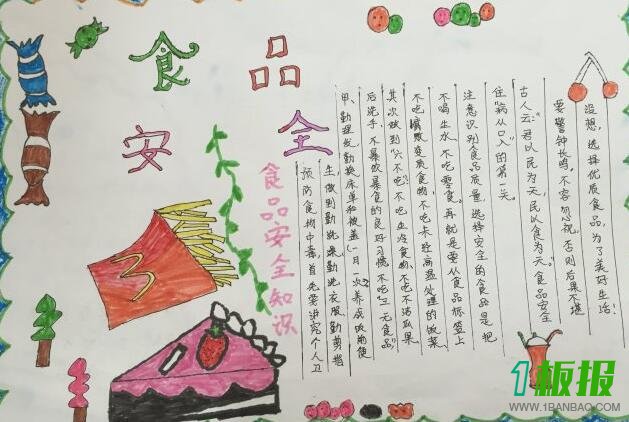 食品
安全
食品安全知识
预防食物中毒，首先要讲究个人卫
生做到勤洗澡勤洗衣服勤剪指
甲、勤理发勤换床单和被盖(一月一次)养成饭前便
后洗手、不暴饮暴食的良好习惯 不吃"三无食品",
其次做到"六不吃":不吃生冷食物 不吃不洁瓜果
不吃腐败变质食物 不吃未经高温处理的饭菜
不喝生水 不吃零食。再就是要从食品标签上
注意识别食品质量 选择安全的食品是把
住"病从口入"的第一关。
古人云:"君以民为天 民以食为天"食品安全
要警钟长鸣,不容忽视,否则后果不堪
没想，选择优质食品,为了美好生活!
1板报
WWW.1BANBAO.COM